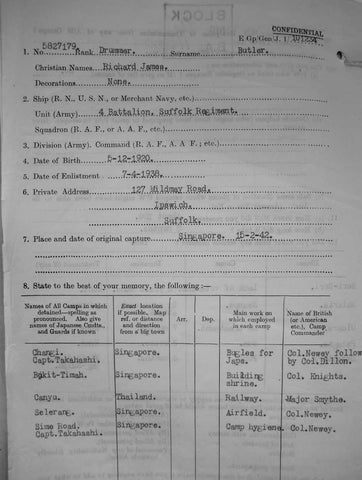 BLOCK
CONFIDENTIAL
E Gp/Gen/J.1/
1. No. 5827179 Rank Drummer. Surname Butler.
Christian Names Richard James.
Decorations None.
2. Ship (R. N., U. S. N., or Merchant Navy, etc.)
Unit (Army) 4 Battalion, Suffolk Regiment.
Squadron (R. A. F., or A. A. F., etc.)
3. Division (Army). Command (R. A. F., A. A. F ; etc.)
4. Date of Birth 5-12-1920.
5. Date of Enlistment 7-4-1938.
6. Private Address 127 Mildmay Road,
Ipswich,
Suffolk.
7. Place and date of original capture Singapore. 15-2-42.
8. State to the best of your memory, the following :—
Names of All Camps in which detained—spelling as pronounced. Also give names of Japanese Cmdts, and Guards if known
Exact location if possible. Map ref. or distance and direction from a big town
Arr.
Dep.
Main work on which employed in each camp
Name of British (or American etc.), Camp Commander
Changi. Singapore. Bugles for Col.Newey follow
Capt.Takahashi. Japs. by Col.Dillon.
Bukit-Timah. Singapore. Building Col. Knights.
shrine.
Canyu. Thailand. Railway. Major Smythe.
Selerang. Singapore. Airfield. Col.Newey.
Sime Road. Singapore. Camp hygiene. Col.Newey.
Capt.Takahashi.